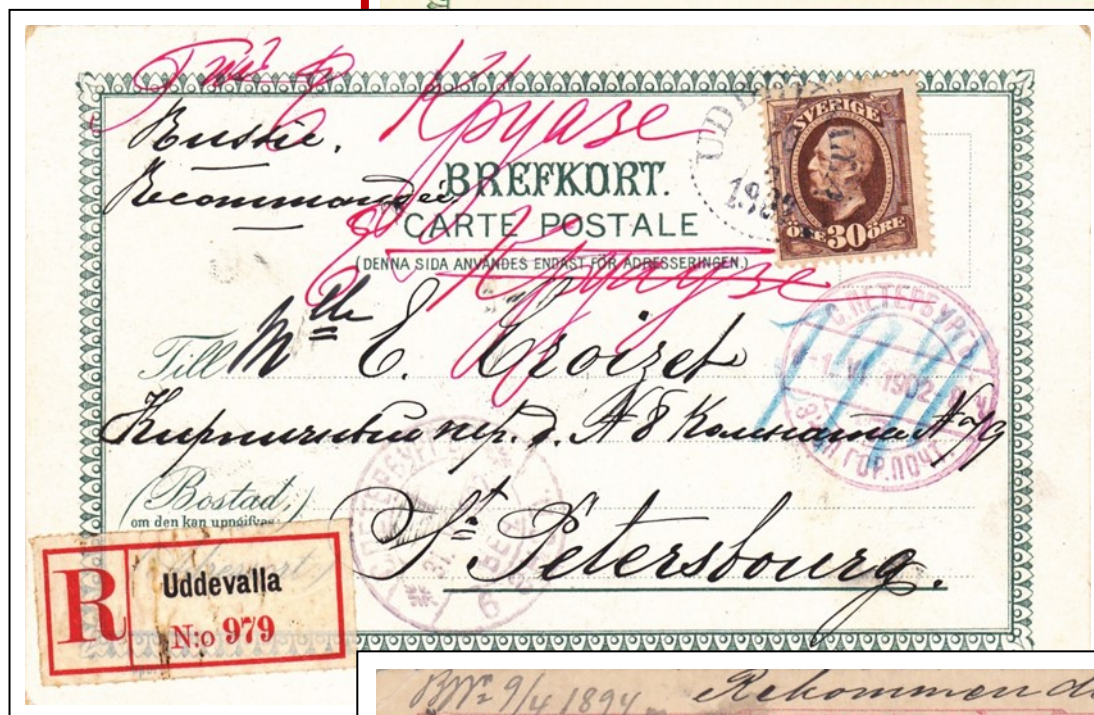 Круазе
Russie,
Recommandée
BREFKORT.
CARTE POSTALE
(DENNA SIDA ANVÄNDES ENDAST FÖR ADRESSERINGEN.)
Круазе
SVERIGE
ÖRE 30 ÖRE
UDDEVALLA
С. ПЕТЕРБУРГЪ
1902
ГОР. ПОЧТ.
Till Mlle E. Croizet
Кирпичный пер. д. № 8 Комната № 79
(Bostad,
om den kan uppgifvas
С. ПЕТЕРБУРГ
St. Petersbourg.
R Uddevalla
N:o 979
9/4 1894